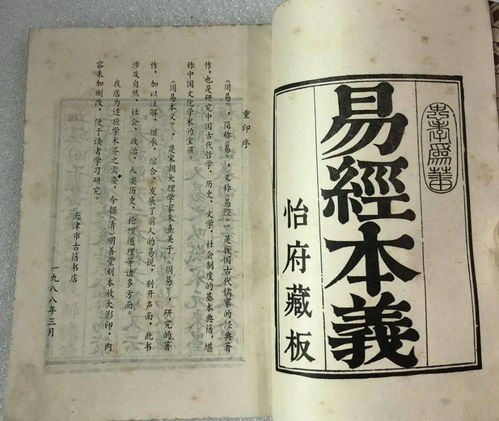 易經本義
怡府藏板
重印序
《周易》，简称《易》，又称《易经》，是我国古代儒家的经典著
作，也是研究中国古代哲学、历史、文学、社会制度的基本典籍，堪
称中国文化学术的宝
《周易本义》，是宋朝大理学家朱熹关于《周易》，研究的著
作，加以注解，继承、综合、发展了前人的易说，别开声面，此书
涉及自然、社会、政治、人类历史、伦理道理等诸多方面。
我店为适应学术界之需要，今据（清）明善堂刻本放大影印，内
容未加删改，便于读者学习研究。
天津市古籍书店
一九八八年三月